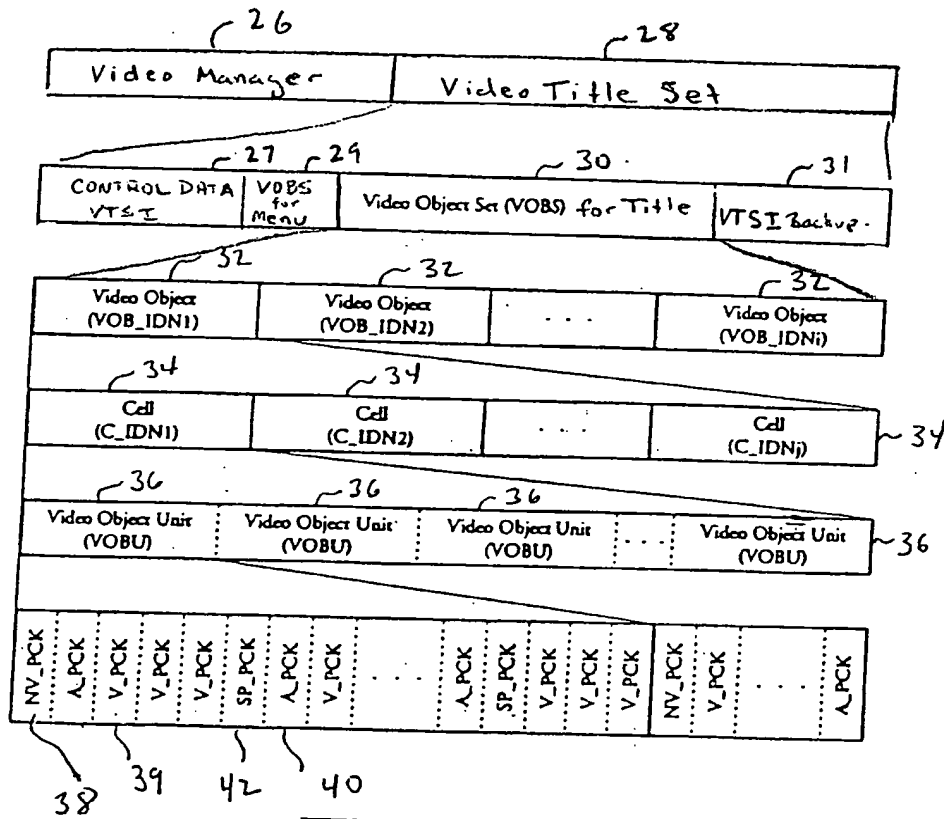 26 28
Video Manager Video Title Set
27 29 30 31
CONTROL DATA VTSI VOBS for Menu Video Object Set (VOBS) for Title VTSI Backup.
32 32 32
Video Object (VOB_IDN1) Video Object (VOB_IDN2) . . . Video Object (VOB_IDNi)
34 34
Cell (C_IDN1) Cell (C_IDN2) . . . Cell (C_IDNj) 34
36 36 36
Video Object Unit (VOBU) Video Object Unit (VOBU) Video Object Unit (VOBU) . . . Video Object Unit (VOBU) 36
NV_PCK A_PCK V_PCK V_PCK V_PCK SP_PCK A_PCK V_PCK . . . . A_PCK SP_PCK V_PCK V_PCK V_PCK NV_PCK V_PCK . . . . A_PCK
38 39 42 40